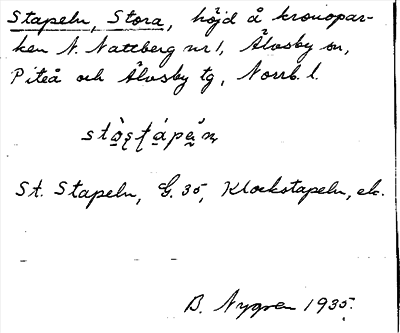 Stapeln, Stora, höjd å kronopar-
ken N. Nattberg nr 1, Älvsby sn,
Piteå och Älvsby tg, Norrb. l.
St. Stapeln, G. 35, Klockstapeln, ek.
B. Nygren 1935.